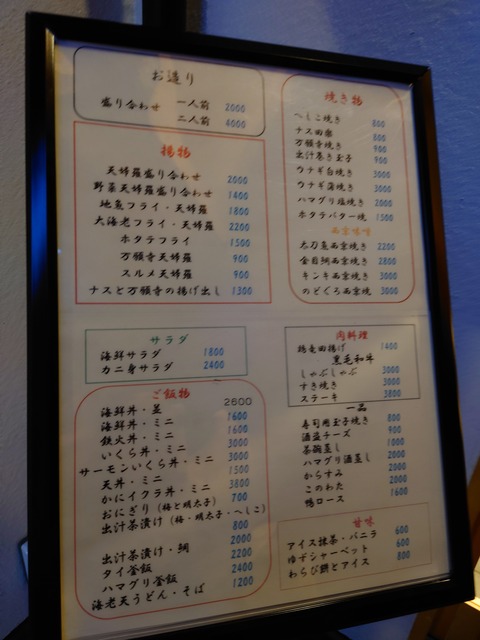 お造り
盛り合わせ 一人前 2000
二人前 4000
揚物
天婦羅盛り合わせ 2000
野菜天婦羅盛り合わせ 1400
地魚フライ・天婦羅 1800
大海老フライ・天婦羅 2200
ホタテフライ 1500
万願寺天婦羅 900
スルメ天婦羅 900
ナスと万願寺の揚げ出し 1300
サラダ
海鮮サラダ 1800
カニ身サラダ 2400
ご飯物
海鮮丼・並 2600
海鮮丼・ミニ 1600
鉄火丼・ミニ 1600
いくら丼・ミニ 3000
サーモンいくら丼・ミニ 3000
天丼・ミニ 1500
かにイクラ丼・ミニ 3800
おにぎり(梅と明太子) 700
出汁茶漬け(梅・明太子・へしこ)
800
出汁茶漬け・鯛 2000
タイ釜飯 2200
ハマグリ釜飯 2400
海老天うどん・そば 1200
焼き物
へしこ焼き 800
ナス田楽 800
万願寺焼き 900
出汁巻き玉子 900
ウナギ白焼き 3000
ウナギ蒲焼き 3000
ハマグリ塩焼き 2000
ホタテバター焼 1500
西京味噌
太刀魚西京焼き 2200
金目鯛西京焼き 2800
キンキ西京焼き 3000
のどぐろ西京焼 3000
肉料理
鶏竜田揚げ 1400
黒毛和牛
しゃぶしゃぶ 3000
すき焼き 3000
ステーキ 3800
一品
寿司用玉子焼き 800
酒盗チーズ 900
茶碗蒸し 1000
ハマグリ酒蒸し 2000
からすみ 2000
このわた 2000
鴨ロース 1600
甘味
アイス抹茶・バニラ 600
ゆずシャーベット 600
わらび餅とアイス 800